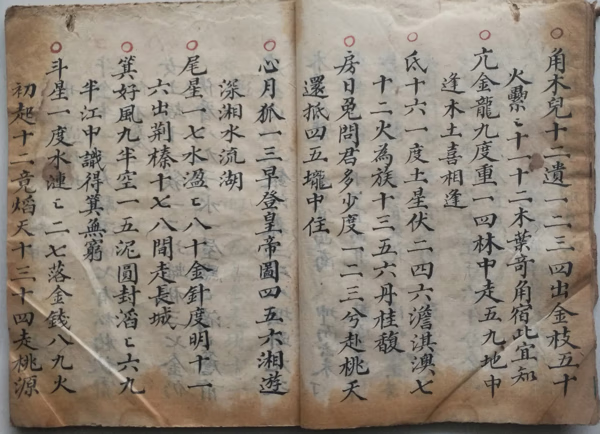 角木兒十二遺一二三四出金枝五十
火纍〻十一十二木葉奇角宿此宜知
亢金龍九度重一四林中走五九地中
逢木土喜相逢
氐十六一度土星伏二四六澹淇澳七
十二火為族十三五六丹桂馥
房日兔問君多少度一二三兮赴桃夭
還抵四五壠中住
心月狐一三早登皇帝圖四五木湘遊
深湘水流湖
尾星一七水盈〻八十金針度明十一
六出荆榛十七八間走長城
箕好風九半空一五泥圓封滔〻六九
半江中識得箕無窮
斗星一度水漣〻二七落金錢八九火
初起十二竟熖天十三十四走桃源